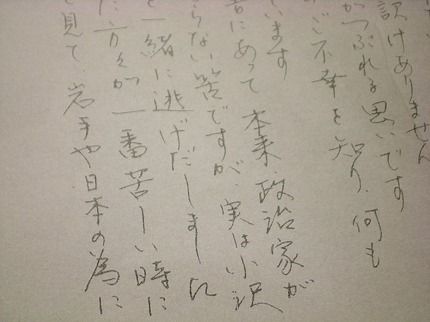 訳けありません
がつぶれる思いです
ご不幸を知り、何も
います
にあって本来政治家が
らない筈ですが、実は小沢
一緒に逃げだしました
た方々が一番苦しい時に
見て岩手や日本の為に